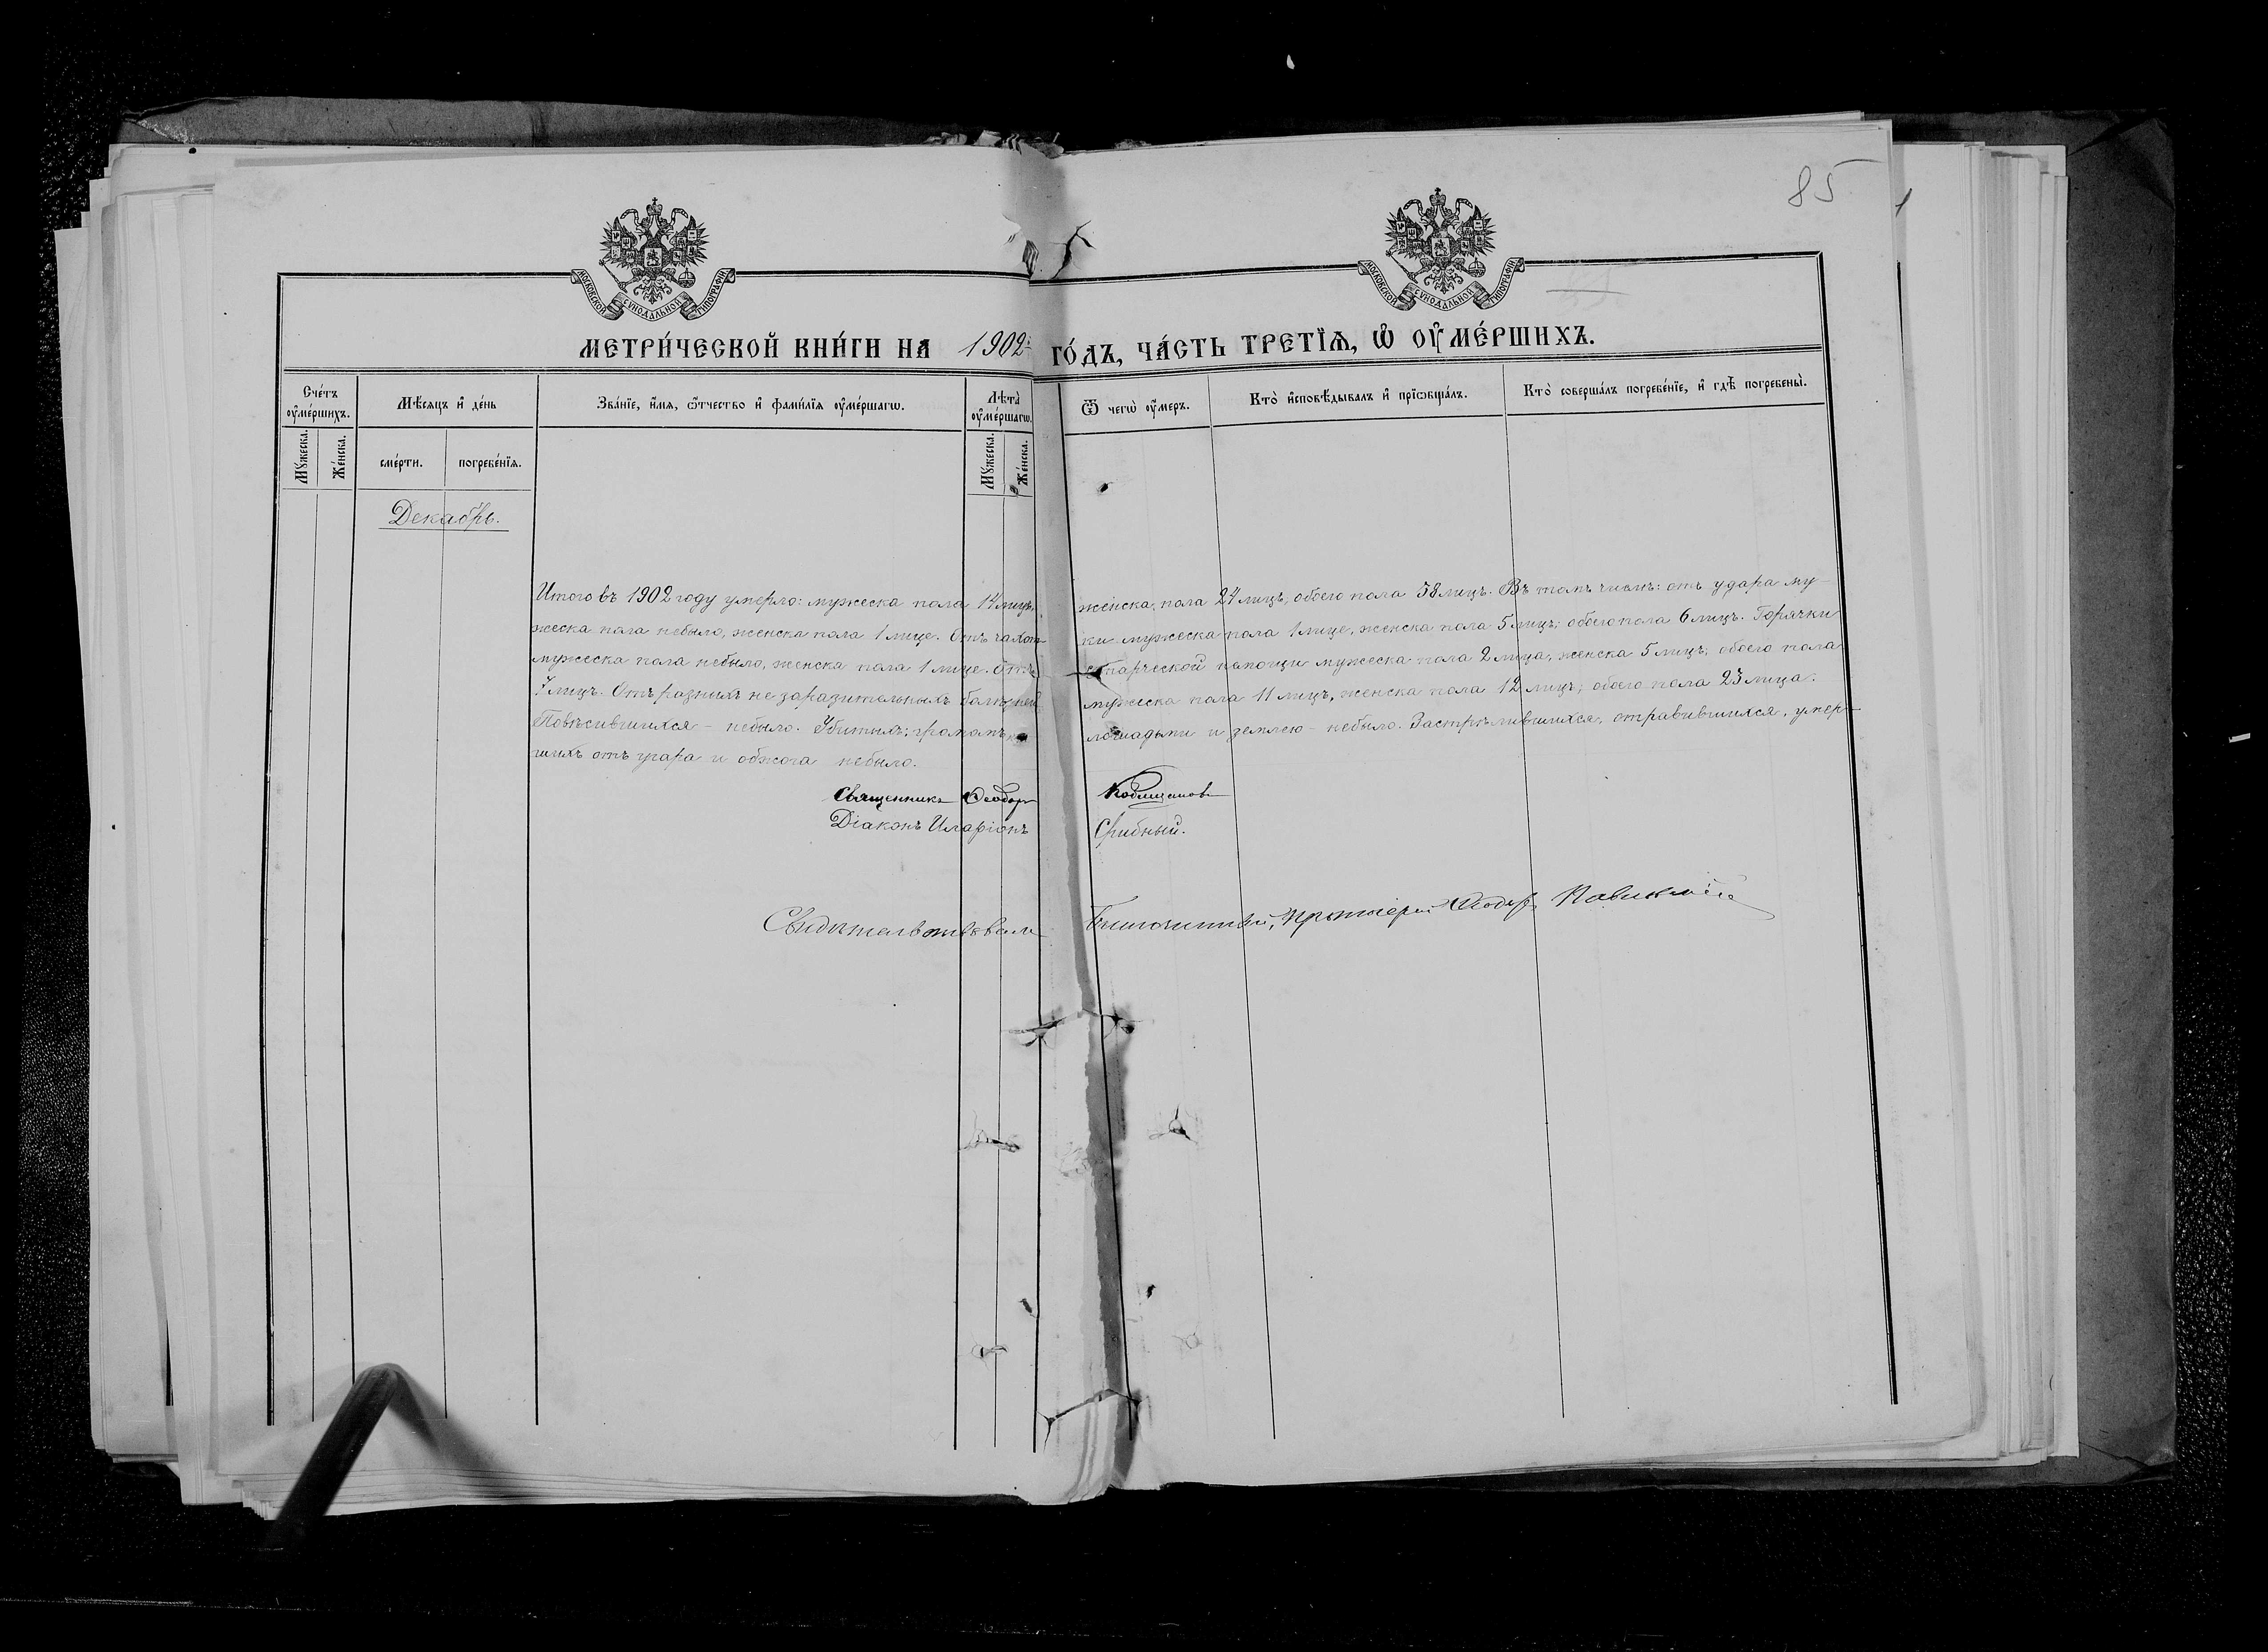 85
МОСКОВСКОЙ СѴНОДАЛЬНОЙ ТИПОГРАФІИ
МОСКОВСКОЙ СѴНОДАЛЬНОЙ ТИПОГРАФІИ
МЕТРИ́ЧЕСКОЙ КНИ́ГИ НА 1902 ГО́ДЪ, ЧА́СТЬ ТРЕТЇѦ, Ѡ ОУ҆МЕ́РШИХЪ.
Сче́тъ оу҆ме́ршихъ.
Мѣсяцъ и҆ де́нь
Зва́нїе, и҆́мя, ѻ҆́тчество и҆ фами́лїя оу҆ме́ршагѡ.
Лѣта̀ оу҆ме́ршагѡ.
Ѿ чегѡ̀ оу҆́меръ.
Кто̀ и҆сповѣ́дывалъ и҆ прїѡбща́лъ.
Кто̀ соверша́лъ погребе́нїе, и҆ гдѣ̀ погребены̀.
Мꙋ́жеска.
Же́нска.
сме́рти.
погребе́нїя.
Мꙋ́жеска.
Же́нска.
Декабрь.
Итого въ 1902 году умерло: мужеска пола 14 лицъ, женска, пола 24 лицъ, обоего пола 38 лицъ. Въ томъ числѣ: отъ удара му-
жеска пола небыло, женска пола 1 лице. Отъ чахот ки мужеска пола 1 лице, женска пола 5 лицъ; обоего пола 6 лицъ. Горячки
мужеска пола небыло, женска пола 1 лице. Отъ старческой немощи мужеска пола 2 лица, женска 5 лицъ; обоего пола
7 лицъ. Отъ разныхъ не заразительныхъ болѣзней мужеска пола 11 лицъ, женска пола 12 лицъ; обоего пола 23 лица.
Повѣсившихся - небыло. Убитыхъ: громомъ, лошадьми и землею - небыло. Застрѣлившихся, отравившихся, умер-
шихъ отъ угара и обжога небыло.
Священникъ Ѳеодоръ
Діаконъ Иларіонъ Срибный.
Свидѣтельствовалъ Благочинный, Протоіерей Ѳеодоръ